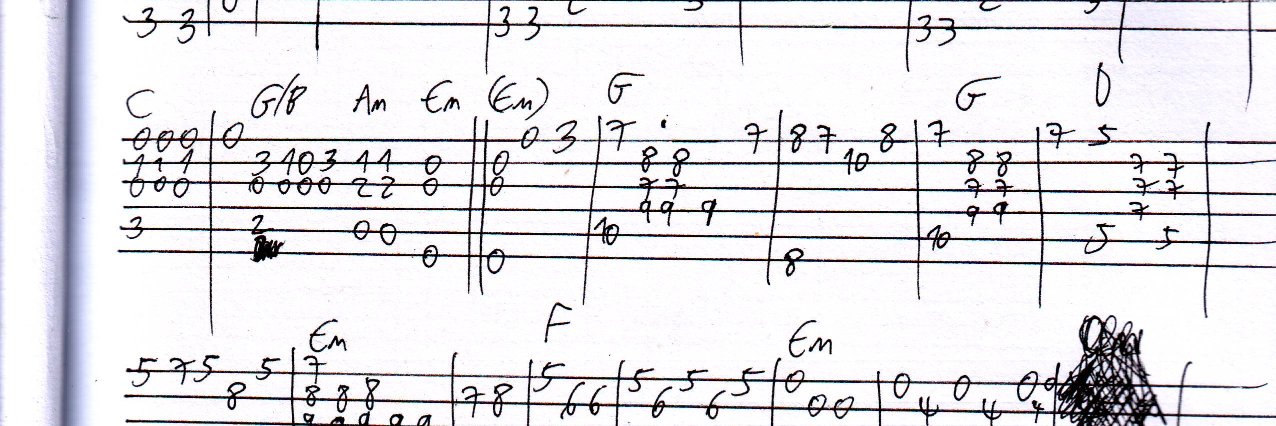 3 3 33 33
C G/B Am Em (Em) G G D
000 0 0 3 7 7 87 8 7 7 5
111 3103 11 0 0 88 10 88 77
000 0000 22 0 0 77 77 77
99 9 99 7
3 2 00 10 10 5 5
0 0 8
Em F Em
575 5 7 5 5 5 5 0 0 0 0
8 888 78 66 6 6 00 4 4 4